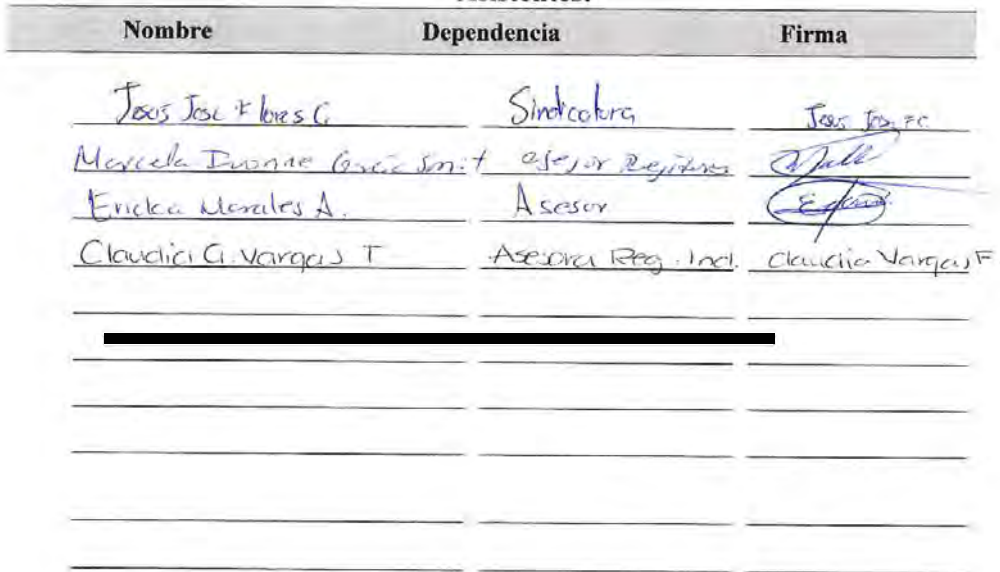 Nombre Dependencia Firma
Jesus Jose Flores C. Sindicatura Jesus Jose F C.
Marcela Ivonne Garcia Smit asesor
Ericka Morales A. Asesor
Claudia G. Vargas T Asesora Reg. Ind. Claudia Vargas F